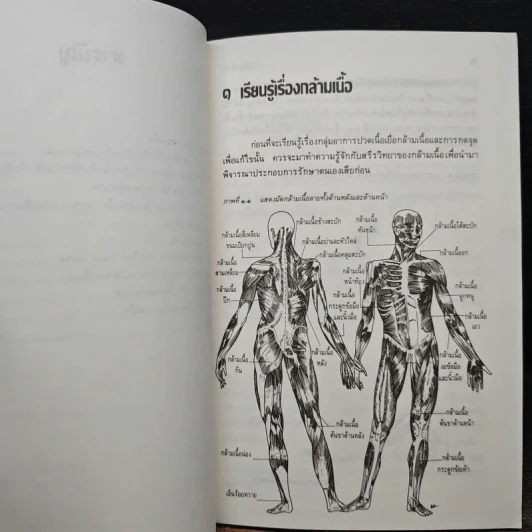 สารบัญ
๑ เรียนรู้เรื่องกล้ามเนื้อ
ก่อนที่จะเรียนรู้เรื่องกลุ่มอาการปวดเนื้อเยื่อกล้ามเนื้อและการกดจุด
เพื่อแก้ไขนั้น ควรจะมาทำความรู้จักกับสรีรวิทยาของกล้ามเนื้อเพื่อนำมา
พิจารณาประกอบการรักษาตนเองเสียก่อน
ภาพที่ ๑.๑ แสดงมัดกล้ามเนื้อลายทั้งด้านหลังและด้านหน้า
กล้ามเนื้อข้างสะบัก
กล้ามเนื้อสี่เหลี่ยม
ขนมเปียกปูน
กล้ามเนื้อบ่าและหัวไหล่
กล้ามเนื้อคลุมสะบัก
กล้ามเนื้อ
สามเหลี่ยม
กล้ามเนื้อ
ปีก
กล้ามเนื้อ
ต้นหน้า
กล้ามเนื้อใต้สะบัก
กล้ามเนื้ออก
กล้ามเนื้อ
หน้าท้อง
กล้ามเนื้อ
กระดูกข้อมือ
และนิ้วมือ
กล้ามเนื้อ
ลูกหนู
กล้ามเนื้อ
เอว
กล้ามเนื้อ
ก้น
กล้ามเนื้อ
หลัง
กล้ามเนื้อ
งอข้อมือ
และนิ้วมือ
กล้ามเนื้อ
ต้นขาด้านหลัง
กล้ามเนื้อ
ต้นขาด้านหน้า
กล้ามเนื้อน่อง
กล้ามเนื้อ
กระดูกข้อเท้า
เอ็นร้อยหวาย